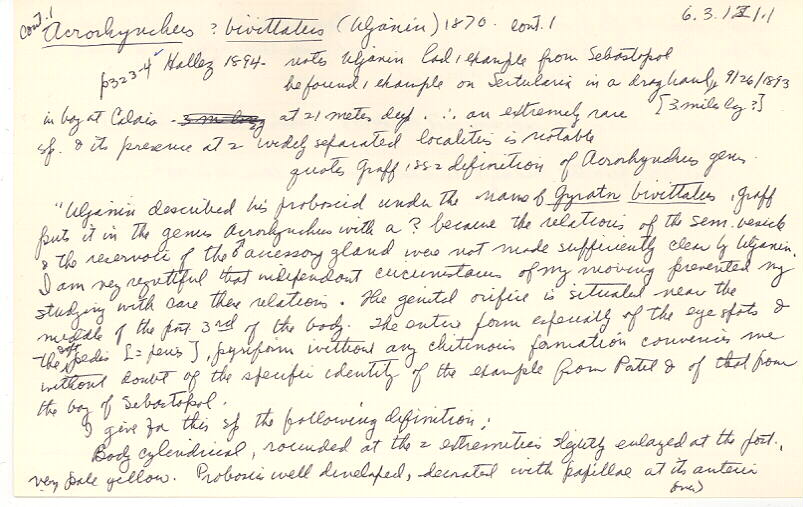 cont. 1 Acrorhynchus ? bivittatus (Uljanin) 1870. cont. 1 6.3.1 X 1.1
p323-4 ✓ Hallez 1894 - notes Uljanin had 1 example from Sebastopol
he found 1 example on Sertularia in a drag haul, 9/26/1893
in bay at Calais - at 21 meters deep. ∴ an extremely rare [3 miles long ?]
sp. & its presence at 2 widely separated localities is notable
quotes Graff 1882 definition of Acrorhynchus genus.
"Uljanin described his proboscid under the name of Gyrator bivittatus, Graff
puts it in the genus Acrorhynchus with a ? because the relations of the sem. vesicle
& the reservoir of the ♂ accessory gland were not made sufficiently clear by Uljanin.
I am very regretful that independent circumstances of my moving prevented my
studying with care these relations. The genital orifice is situated near the
middle of the post 3rd of the body. The entire form especially of the eye spots &
the soft pedis [= penis], pyriform without any chitinous formation convinces me
without doubt of the specific identity of the example from Portel & of that from
the bay of Sebastopol.
I give for this sp the following definition:
Body cylindrical, rounded at the 2 extremities slightly enlarged at the post.,
very pale yellow. Proboscis well developed, decorated with papillae at its anterior
over)